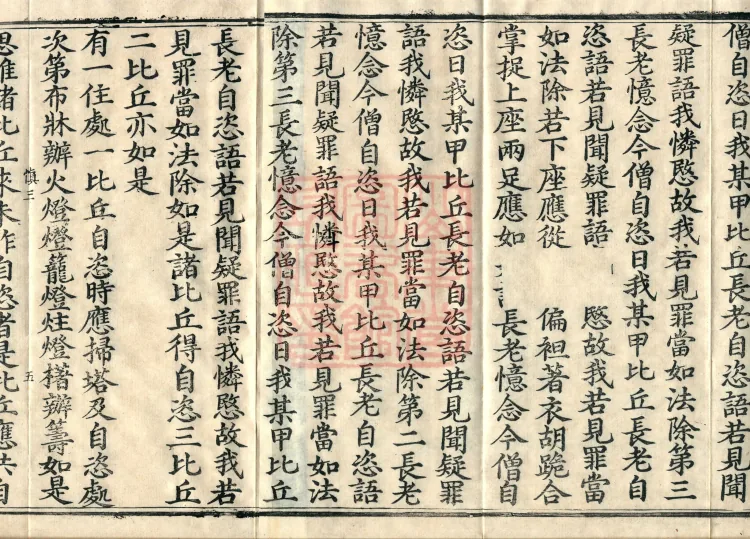 僧自恣日我某甲比丘長老自恣語若見聞
疑罪語我憐愍故我若見罪當如法除第三
長老憶念今僧自恣日我某甲比丘長老自
恣語若見聞疑罪語 愍故我若見罪當
如法除若下座應從 偏袒著衣胡跪合
掌捉上座兩足應如 長老憶念今僧自
恣日我某甲比丘長老自恣語若見聞疑罪
語我憐愍故我若見罪當如法除第二長老
憶念今僧自恣日我某甲比丘長老自恣語
若見聞疑罪語我憐愍故我若見罪當如法
除第三長老憶念今僧自恣日我某甲比丘
長老自恣語若見聞疑罪語我憐愍故我若
見罪當如法除如是諸比丘得自恣三比丘
二比丘亦如是
有一住處一比丘自恣時應掃塔及自恣處
次第布牀辦火燈燈籠燈炷燈𣚦辦籌如是
慎三 五
思惟諸比丘來未作自恣者是比丘應共自